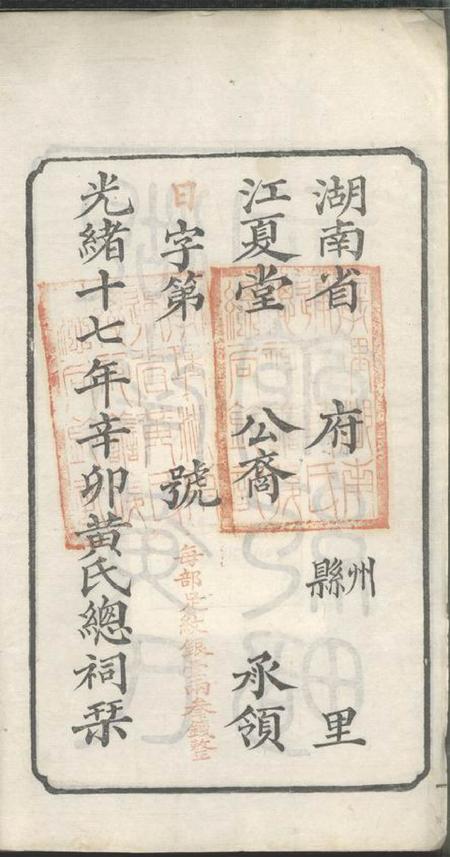 湖南省 府 州縣 里
江夏堂 公裔 承領
日字第 號
每部足紋銀壹兩叁錢整
光緒十七年辛卯黃氏總祠栞